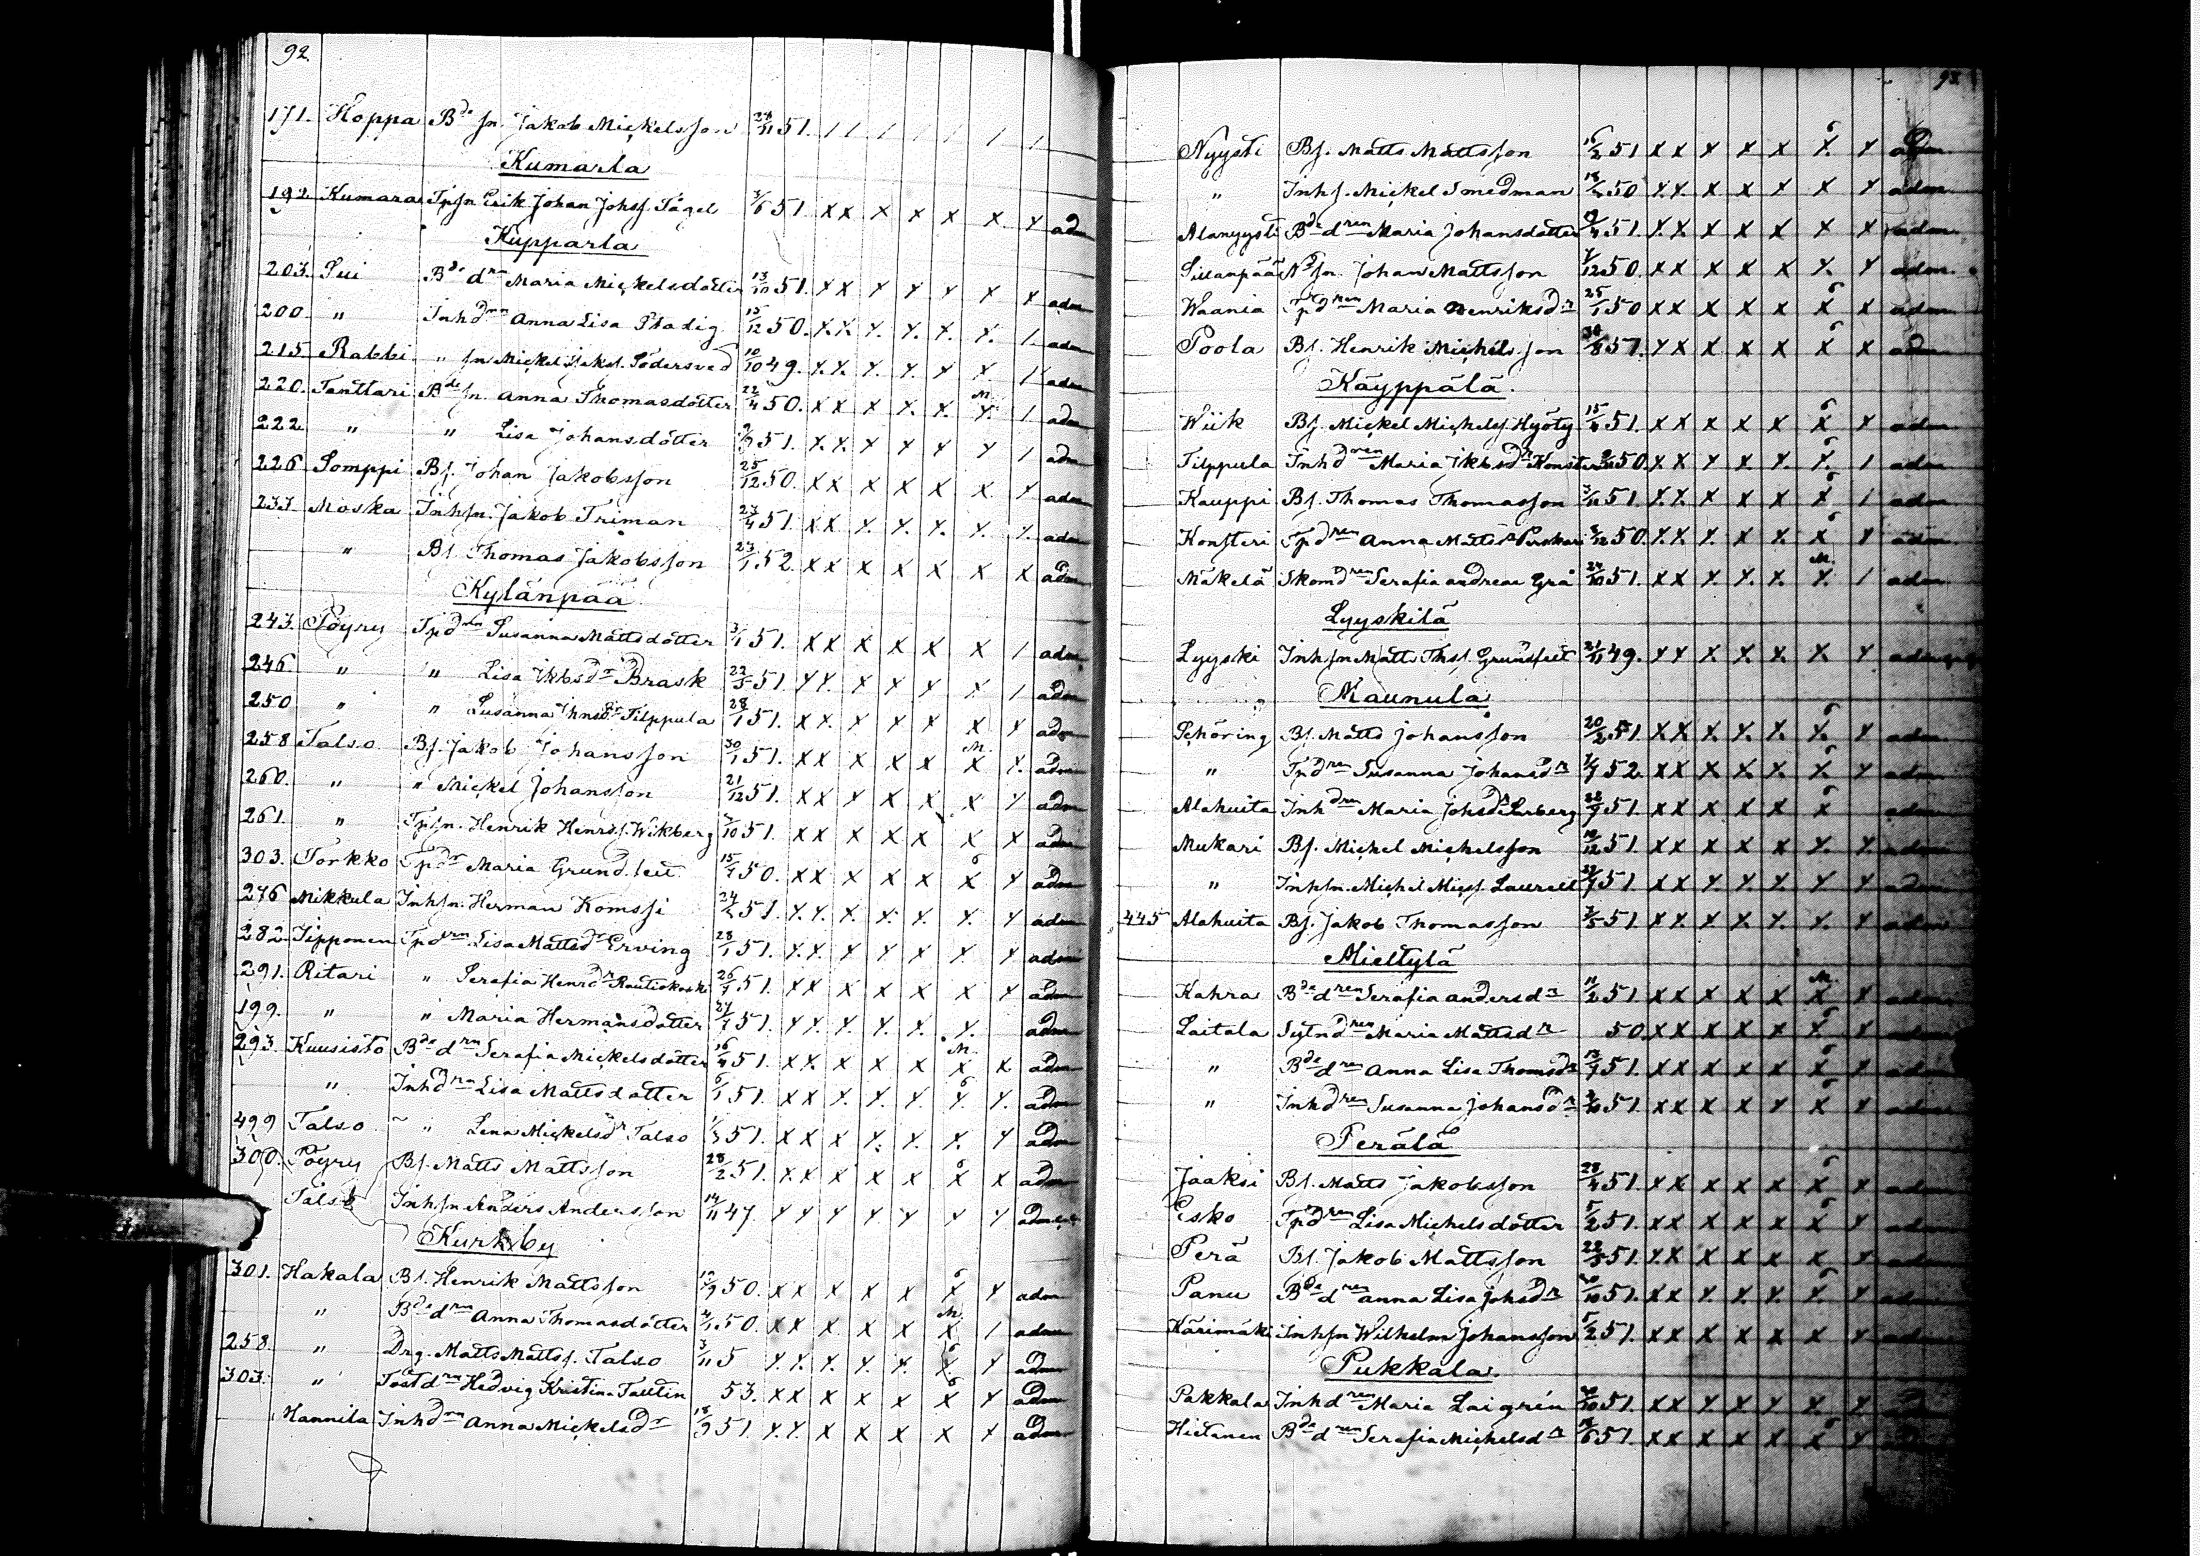 92.
171. Hoppa Bde sn. Jakob Mickelsson 28/11 51. / / / / / / /
Kumarla
192. Kumara Tpsn Erik Johan Johss. Tägel 3/6 51. x x x x x x x adm
Kupparla
203. Pui Bde drn Maria Mickelsdotter 13/10 51. x x x x x x x adm
200. " Inhdrn Anna Lisa Stadig 15/12 50. x. x. x. x. x. x. / adm
215. Rabbi " sn Mickel Jaks. Södersved 10/10 49. x. x. x. x. x x. / adm
220. Tanttari Bde sn. Anna Thomasdotter 22/4 50. x x x x. x. M. x. / adm
222. " " Lisa Johansdotter 51. x. x. x x x x / adm
226. Somppi Bs. Johan Jakobsson 25/12 50. x x x x x x. x adm
233. Moska Inhsn. Jakob Friman 27/4 51. x x x. x. x. x. x. adm
" Bs. Thomas Jakobsson 23/1 52. x x x x x x x adm
Kylänpää
243. Pöyry Tpdrn Susanna Mattsdotter 3/1 51. x x x x x x / adm
246 " " Lisa Jkbsdr Brask 22/5 51. x x. x x x x / adm
250 " " Susanna Jhnsdr Filppula 28/1 51. x x. x x x x x adm
258 Talso Bs. Jakob Johansson 30/1 51. x x x x x M. x x. adm
260. " " Mickel Johansson 21/12 51. x x x x x x x adm
261. " Tpsn. Henrik Henrss. Wikberg 7/10 51. x x x x x x x adm
303. Torkko Tpdr Maria Grundfelt 15/7 50. x x x x x 6 x x adm
276 Mikkula Inhsn. Herman Komssi 24/2 51. x. x. x. x. x. x. x adm
282. Jipponen Tpdrn Lisa Mattsdr Erving 28/1 51. x. x x x x x x adm
291. Ritari " Serafia Henrdr Rautiokoski 26/7 51. x x x x x x x adm
199. " " Maria Hermansdotter 27/7 51. x x. x. x. x. x. adm
293. Kuusisto Bde drn Serafia Mickelsdotter 16/4 51. x x. x x x M. x x adm
" Inhdrn Lisa Mattsdotter 6/1 51. x x x. x. x. 6 x. x. adm
499 Talso " Lena Mickelsdr Talso 1/3 51. x x x x. x. x. x adm
300. Pöyry Bs. Matts Mattsson 28/2 51. x. x x x x 6 x x adm
Talso Inhsn Anders Andersson 14/11 47. x x x x x x x adm
Kurkby
301. Hakala Bs. Henrik Mattsson 50. x x x x x 6 x x adm
" Bde drn Anna Thomasdotter 50. x x x. x x M x / adm
258. " Drg. Matts Mattss. Talso 3/11 5 x. x. x. x. x. 6 x x adm
303. " Tostdrn Hedvig Kristina Tallten 53. x x x x x 6 x x adm
Hannila Inhdrn Anna Mickelsdr 18/9 51. x. x. x x x x x adm
93.
Nyysti Bs. Matts Mattsson 16/2 51 x x x x x 6 x. x adm
" Inhs. Mickel Smedman 50 x. x. x x x x x adm
Alanyysti Bde drn Maria Johansdotter 51. x. x. x x x x x adm
Sillanpää Nd sn. Johan Mattsson 7/12 50. x x x x x x. x adm.
Waania Tpdren Maria Henriksdr 25/1 50 x x x x x 6 x x adm
Poola Bs. Henrik Mickelsson 30/8 51. x x x x x 6 x x adm
Käyppälä.
Wiik Bs. Mickel Michelss Hyöty 15/4 51. x x x x x 6 x x adm
Filppula Inhdren Maria Jkbsdr Konsteri 50. x x x x x. 6 x. / adm
Kauppi Bs. Thomas Thomasson 51. x. x. x x x 6 x / adm
Konsteri Tpdren Anna Mattsdr 50. x. x. x. x x. 6 x x adm
Mäkelä Skomdren Serafia Andreae Grå 24/10 51. x x x. x. x. M. x. / adm
Lyyskilä
Lyyski Inhsn Matts Thss. Grundfelt 21/11 49. x x x x. x. x. x adm
Maunula
Schöring Bs. Matts Johansson 20/2 51. x x x. x. x. 6 x. x adm
" Tpdren Susanna Johansdr 52. x x x x. x. 6 x. x adm
Alahuita Inhdren Maria Johsdr 51. x x x x x 6 x adm
Mukari Bs. Michel Michelsson 10/12 51. x x x x x x. x. adm
" Inhsn. Michel Micss. Laurell 51 x x x. x. x. x x adm
445 Alahuita Bs. Jakob Thomasson 51. x x. x. x. x. x. x adm
Miettylä
Kahra Bde dren Serafia Andersdr 11/2 51 x x x x x M. x x adm
Laitala Sytndren Maria Mattsdr 50. x x x x x 6 x x adm
" Bde dren Anna Lisa Thomsdr 13/7 51. x x x x x 6 x x adm
" Inhdren Susanna Johansdr 51. x x x x x 6 x x adm
Perälä
Jaaksi Bs. Matts Jakobsson 28/4 51. x x x x x 6 x x adm
Esko Tpdren Lisa Michelsdotter 5/2 51. x x x x x 6 x x adm
Perä Bs. Jakob Mattsson 22/3 51. x x x x x x x adm
Panu Bde dren Anna Lisa Johsdr 51. x x x. x. x. 6 x x adm
Kärimäki Inhsn Wilhelm Johansson 5/2 51. x x x x x x x adm
Pukkala.
Pakkala Inhdren Maria Laigrén 51. x x x. x x x. x
Hietanen Bde dren Serafia Michelsdr 51. x x x x x 6 x x